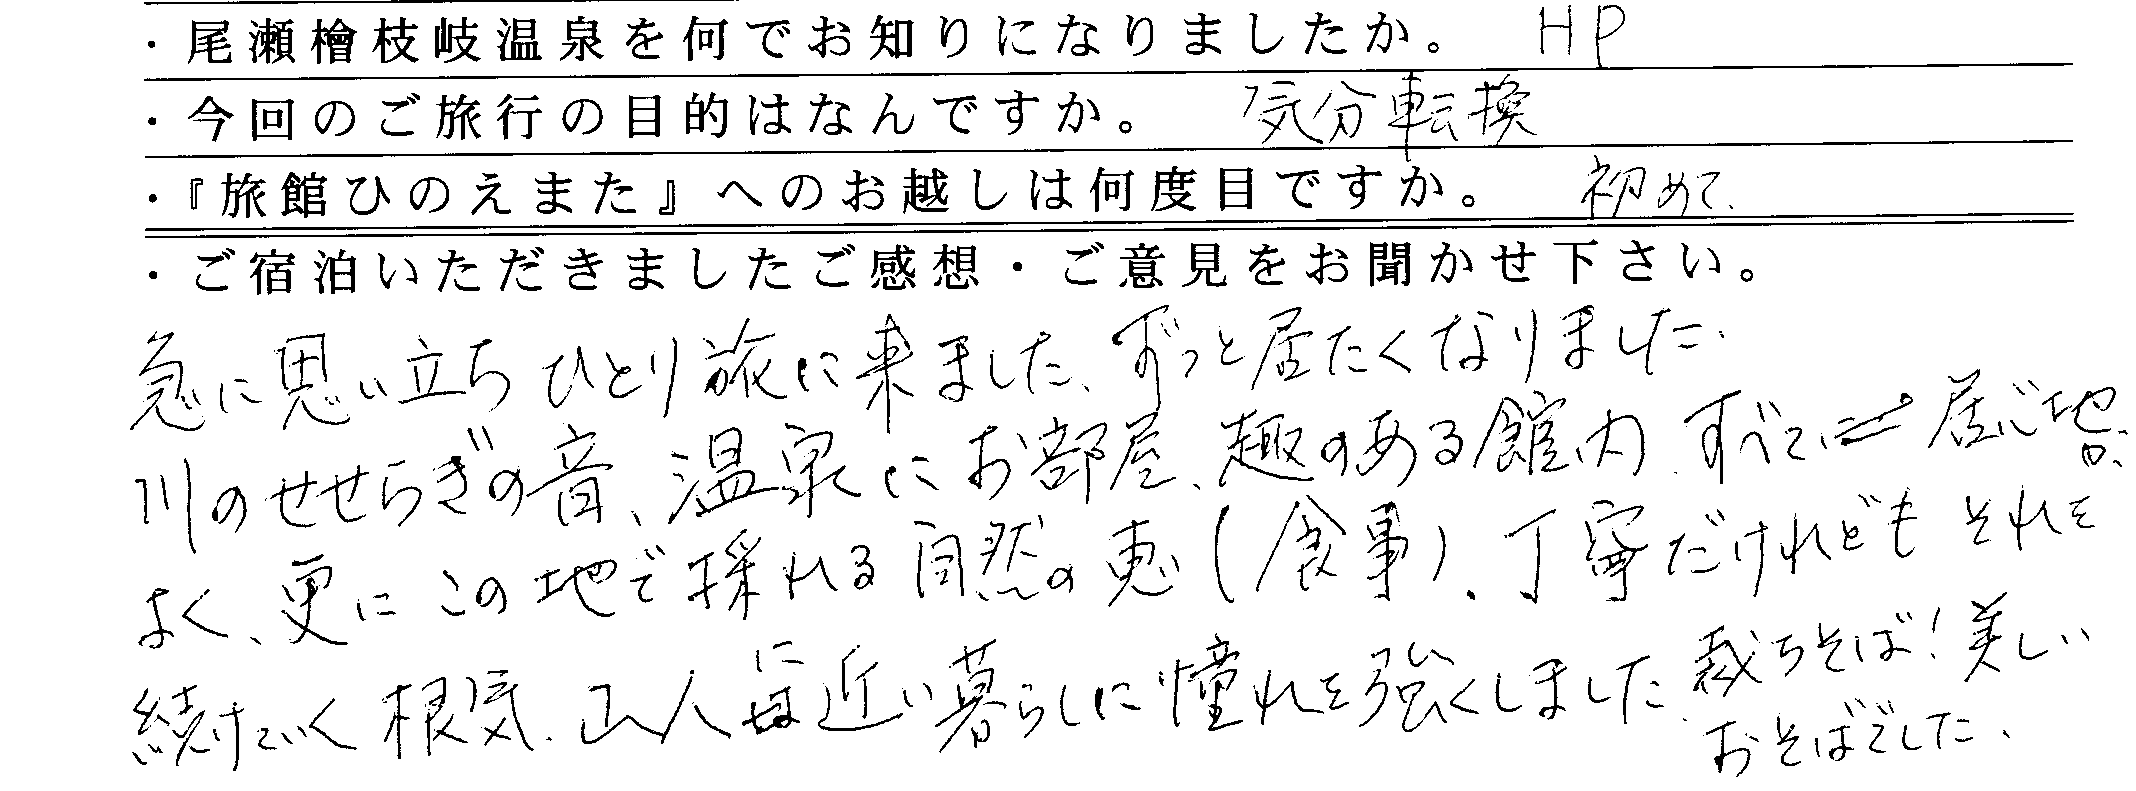 ・尾瀬檜枝岐温泉を何でお知りになりましたか。 HP
・今回のご旅行の目的はなんですか。 気分転換
・『旅館ひのえまた』へのお越しは何度目ですか。 初めて、
・ご宿泊いただきましたご感想・ご意見をお聞かせ下さい。
急に思い立ちひとり旅に来ました、ずっと居たくなりました.
川のせせらぎの音、温泉にお部屋、趣のある館内、すべてに居心地が
よく、更にこの地で採れる自然の恵(食事)、丁寧だけれどもそれを
続けていく根気、山人に近い暮らしに憧れを強くしました、裁ちそば!美しい
おそばでした、